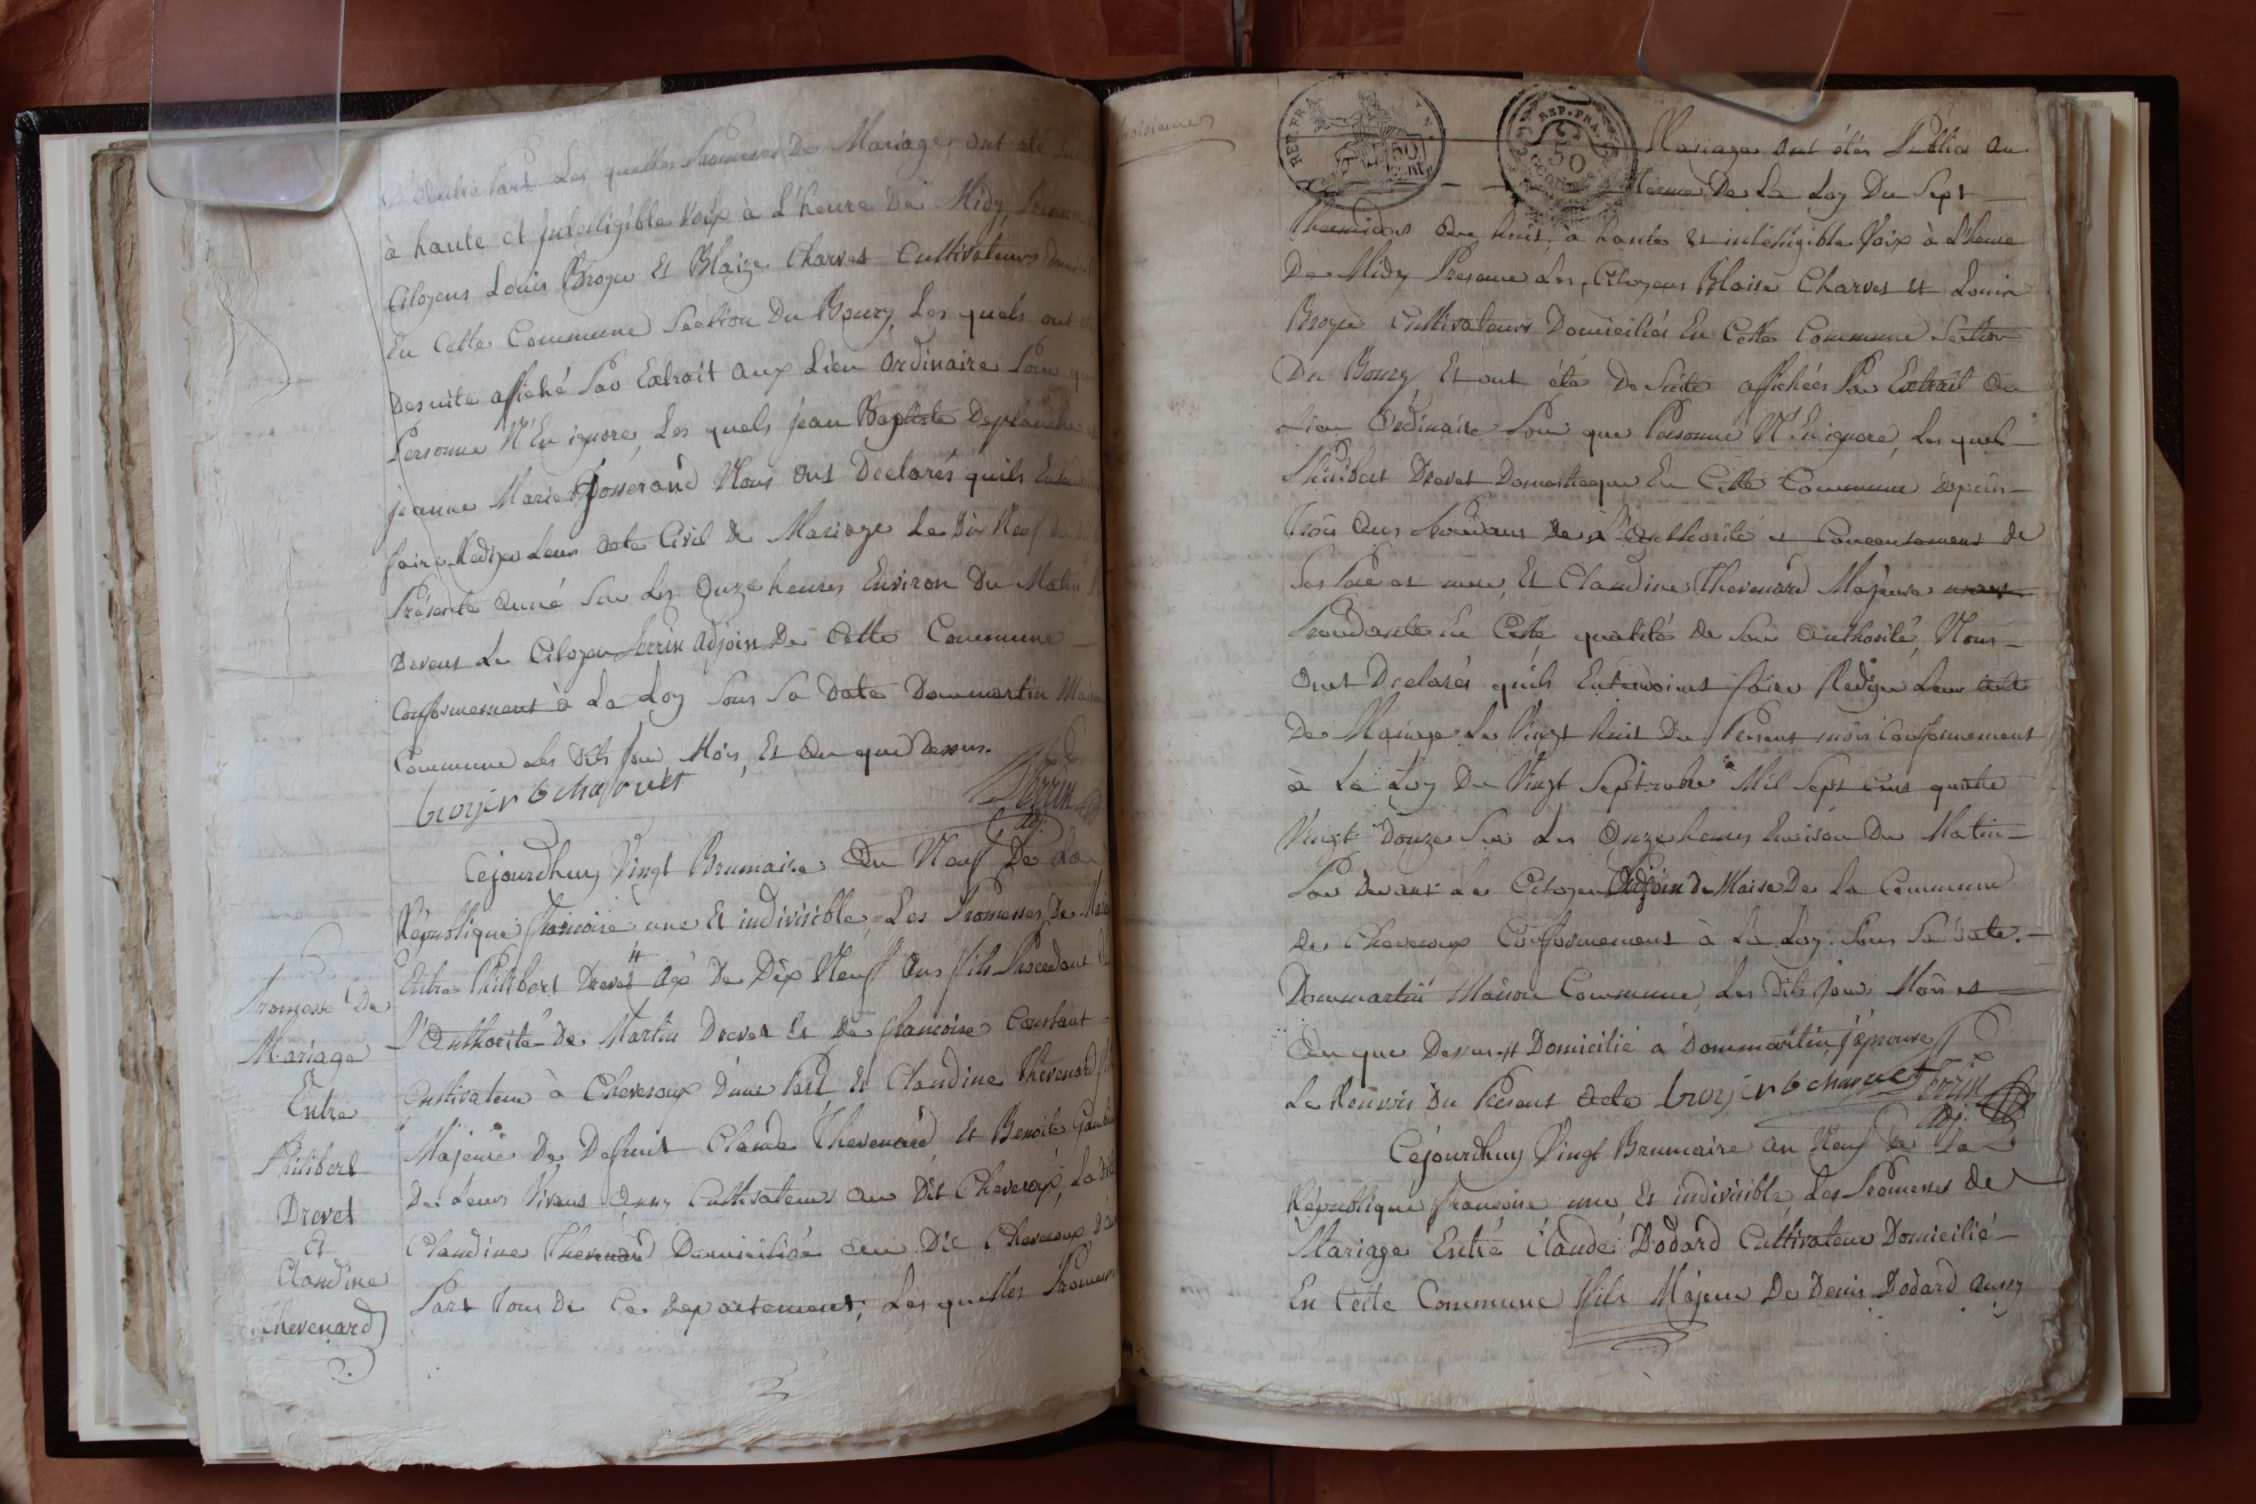 D'autre Part Les quelles Promesses De Mariage ont été
à haute et Intelligible Voix à L'heure De Midy,
Citoyens Louis Broyer Et Blaize Charvet Cultivateurs
En Cette Commune Section Du Bourg, Les quels ont
Desuite affiché Par Extrait aux Lieu ordinaire Pour que
Personne N'En ignore, Les quels jean Baptiste Deplanche
jeanne Marie Josserand Nous Ont Declarés quils
faire Rediger Leur acte Civil De Mariage Le Dix Neuf
Présente année Sur Les Onze heures Environ Du Matin
Devent Le Citoyen Perrin adjoin De Cette Commune
Conformement à La Loy Sous Sa Date Dommartin
Commune Les Dits jour Mois, Et An que Dessus.
broyer b charvet Perrin
adj.
Cejourdhuy Vingt Brumaire An Neuf De La
République françoise une Et indivisible, Les Promesses De
Entre Philibert Drevet # Agé De Dix Neuf Ans fils Procedant
L'Authorité De Martin Drevet Et De francoise Constant
Cultivateur à Cheveroux D'une Part, Et Claudine Thevenard
Majeure De Defunt Claude Thevenard, Et Benoite
De Leurs Vivans Aussy Cultivateurs au Dit Cheveroux, La
Claudine Thevenard Domiciliée au Dit Cheveroux
Part Tous De Ce Departement, Les quelles Promesses
Promesse De
Mariage
Entre
Philibert
Drevet
Et
Claudine
Thevenard
troisieme
REP. FRA.
50
REP. FRA.
50
Mariage ont étés Publié Au
Terme De La Loy Du Sept
Thermidor An huit, à haute et intéligible Voix à L'heure
De Midy Presance Les Citoyens Blaise Charvet Et Louis
Broyer Cultivateurs Domiciliés En Cette Commune Section
Du Bourg Et ont été De Suite affichées Par Extrait Au
Lieu Ordinaire Pour que Personne N'En ignore, Les quel
Philibert Drevet Domestique En Cette Commune depuis
Trois Ans Procédant De L'Authorité et Consentement de
Ses Pere et mere, Et Claudine Thevenard Majeure
Procedante En Cette qualité de Son Authorité, Nous
Ont Declarés quils Entendoient faire Rediger Leur acte
De Mariage Le Vingt huit Du Present mois Conformement
à La Loy Du Vingt Septembre Mil Sept Cens quatre
Vingt Douze Sur Les Onze heures Environ Du Matin
Par Devant Le Citoyen Adjoin De Maire De La Commune
De Cheveroux Conformement à La Loy Sous Sa Date.
Dommartin Maison Commune, Les Dits jour Mois et
An que Dessus # Domicilié à Dommartin j'éprouve
Le Renvois Du Présent Acte broyer b charvet Perrin
adj.
Céjourdhuy Vingt Brumaire An Neuf De La
République françoise une Et indivisible, Les Promesses De
Mariage Entre Claude Dodard Cultivateur Domicilié
En Cette Commune fils Majeur De Denis Dodard Aussy